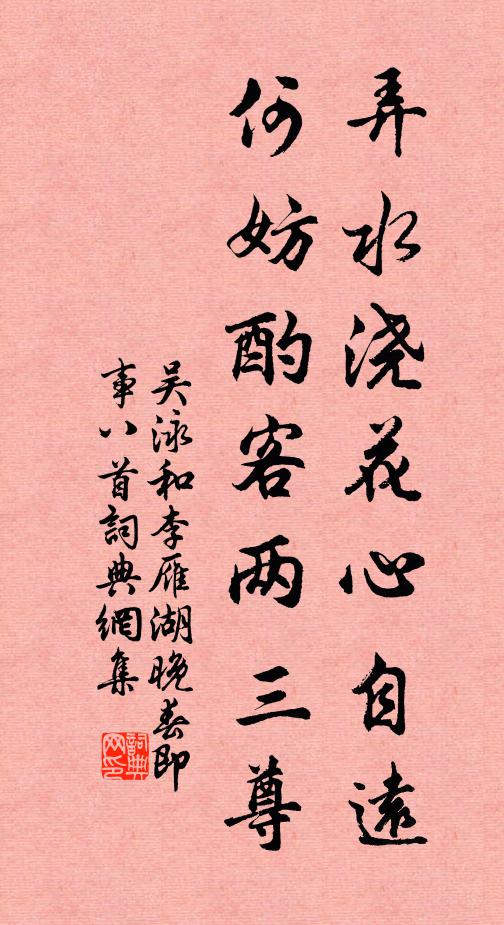 弄水浇花心自遠
何妨酌客两三尊
吴泳和李雁湖晚春即
事八首詞典網集
詞典
网印